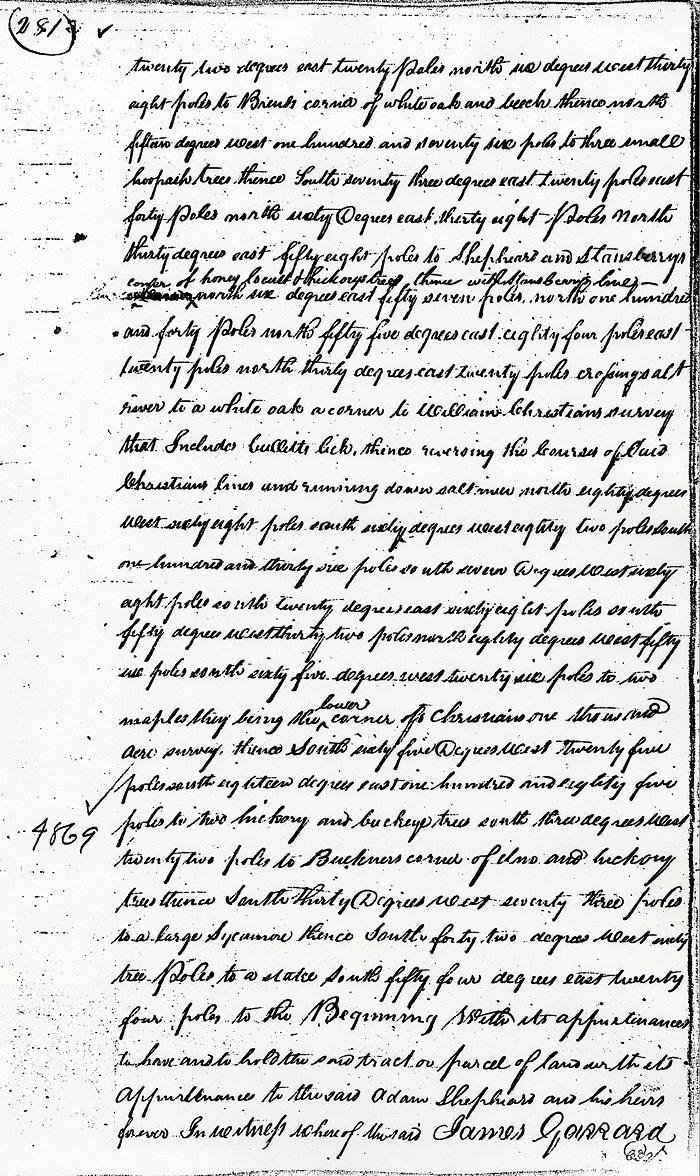 281
twenty two degrees east twenty Poles north six degrees west thirty
eight poles to Briends corner of white oak and beech thence north
fifteen degrees west one hundred and seventy six poles to three small
hoopash trees thence South seventy three degrees east twenty poles east
forty Poles north sixty Degrees east thirty eight Poles North
thirty degrees east fifty eight poles to Shepheard and Stansberrys
corner of honey locust & hickory trees, thence with Stansberrys line
north six degrees east fifty seven poles, north one hundred
and forty Poles north fifty five degrees east eighty four poles east
twenty poles north thirty degrees east twenty poles crossing salt
river to a white oak a corner to William Christians survey
that Includes bullitts lick, thence reversing the Courses of Said
Christians lines and running down salt river north eighty degrees
west sixty eight poles south sixty degrees west eighty two poles South
one hundred and thirty six poles south seven Degrees West sixty
eight poles south twenty degrees east sixty eight poles south
fifty degrees west thirty two poles north eighty degrees west fifty
six poles south sixty five degrees west twenty six poles to two
maples they being the lower corner of sd Christians one thousand
acre survey. thence South sixty five Degrees West twenty five
poles south eighteen degrees east one hundred and eighty five
4869
poles to two hickory and buckeye trees south three degrees West
twenty two poles to Buckners corner of elms and hickory
trees thence South thirty Degrees West seventy three poles
to a large Sycamore thence South forty two degrees West sixty
tree Poles to a stake South fifty four degrees east twenty
four poles to the Beginning With its appurtinances
to have and to hold the said tract or parcel of land with its
Appurtenances to the said Adam Shephard and his heirs
forever In witness where of the said James Garrard